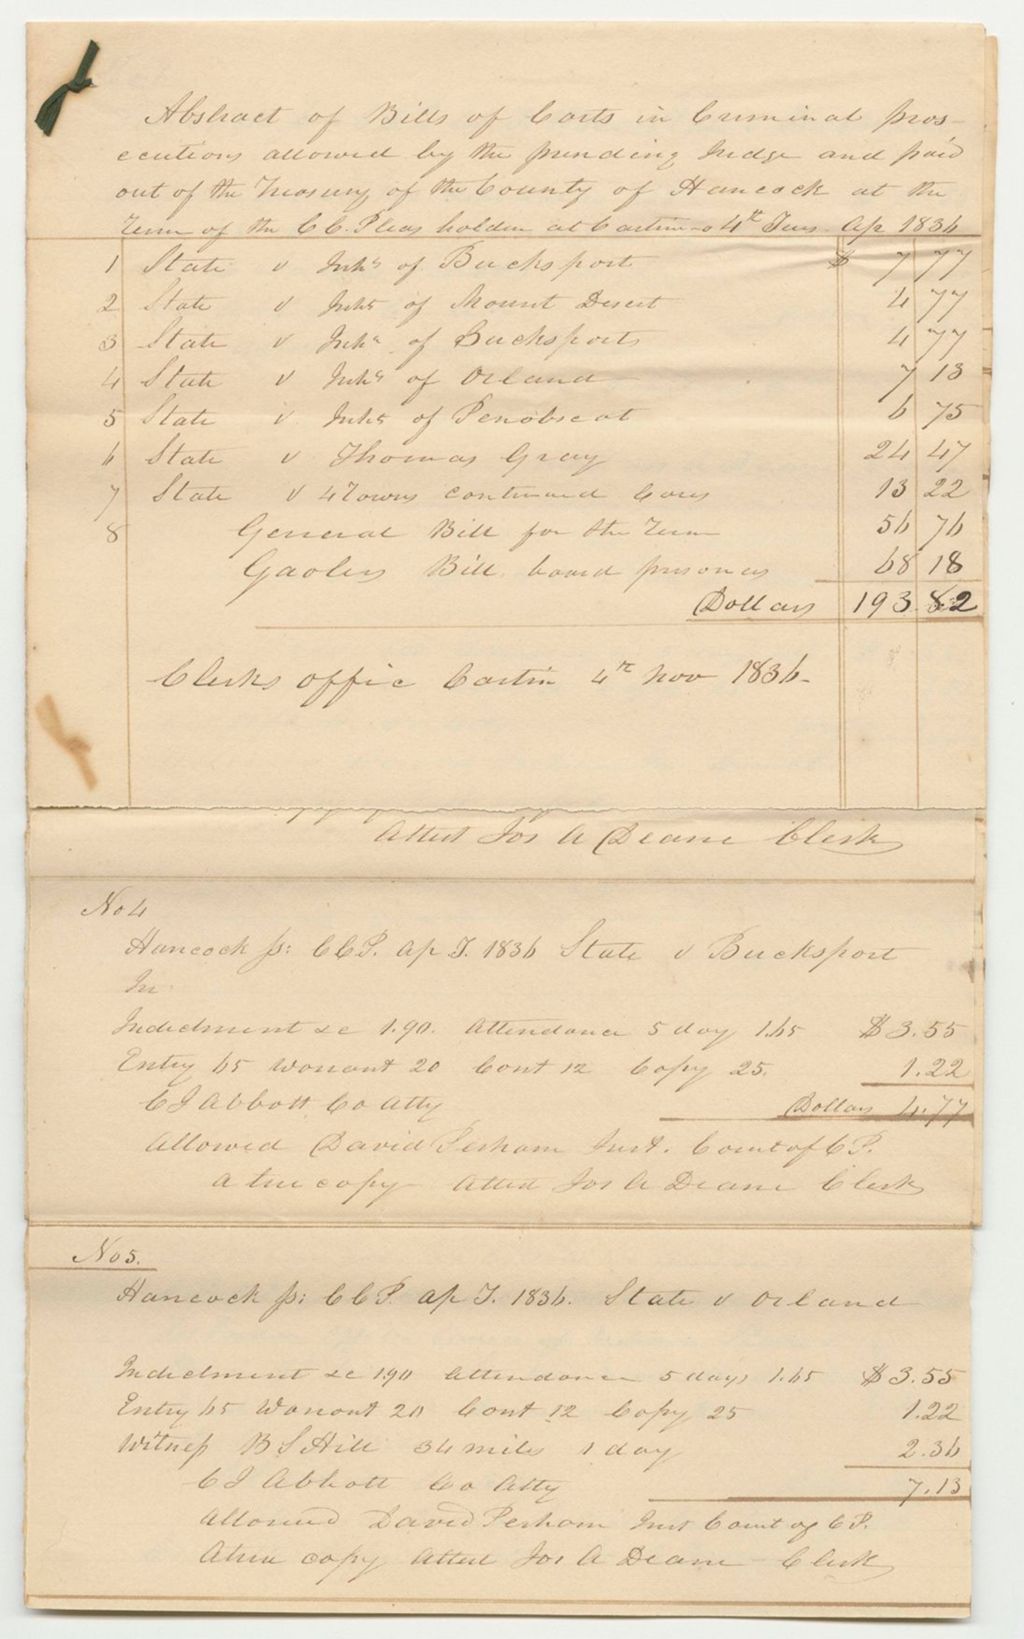 Abstract of Bills of Costs in Criminal pros-
ecutions allowed by the presiding Judge and paid
out of the Treasury of the County of Hancock at the
Term of the C C. Pleas holden at Castine 4th Tues. Ap 1836
1 State v Inhs of Bucksport $ 7 77
2 State v Inhs of Mount Desert 4 77
3 State v Inhs of Bucksport 4 77
4 State v Inhs of Orland 7 13
5 State v Inhs of Penobscot 6 75
6 State v Thomas Gray 24 47
7 State v 4 Towns continued Cases 13 22
8 General Bill for the Term 56 76
Gaolers Bill board prisoners 68 18
Dollars 193.82
Clerks office Castine 4th Nov 1836-
Attest Jos A Deane Clerk
No 4
Hancock ss: C C P. Ap T. 1836 State v Bucksport
In
Indictment &c 1.90. Attendance 5 day 1.65 $3.55
Entry 65 Warrant 20 Cont 12 Copy 25. 1.22
C J Abbott Co Atty Dollars 4.77
Allowed David Perham Just. Court of C P.
A true copy Attest Jos A Deane Clerk
No 5.
Hancock ss: C C P. Ap T. 1836. State v Orland
Indictment &c 1.90 Attendance 5 days 1.65 $3.55
Entry 65 Warrant 20 Cont 12 Copy 25 1.22
Witness B S Hill 34 miles 1 day 2.36
C J Abbott Co Atty 7.13
Allowed David Perham Just Court of C P.
A true copy Attest Jos A Deane Clerk